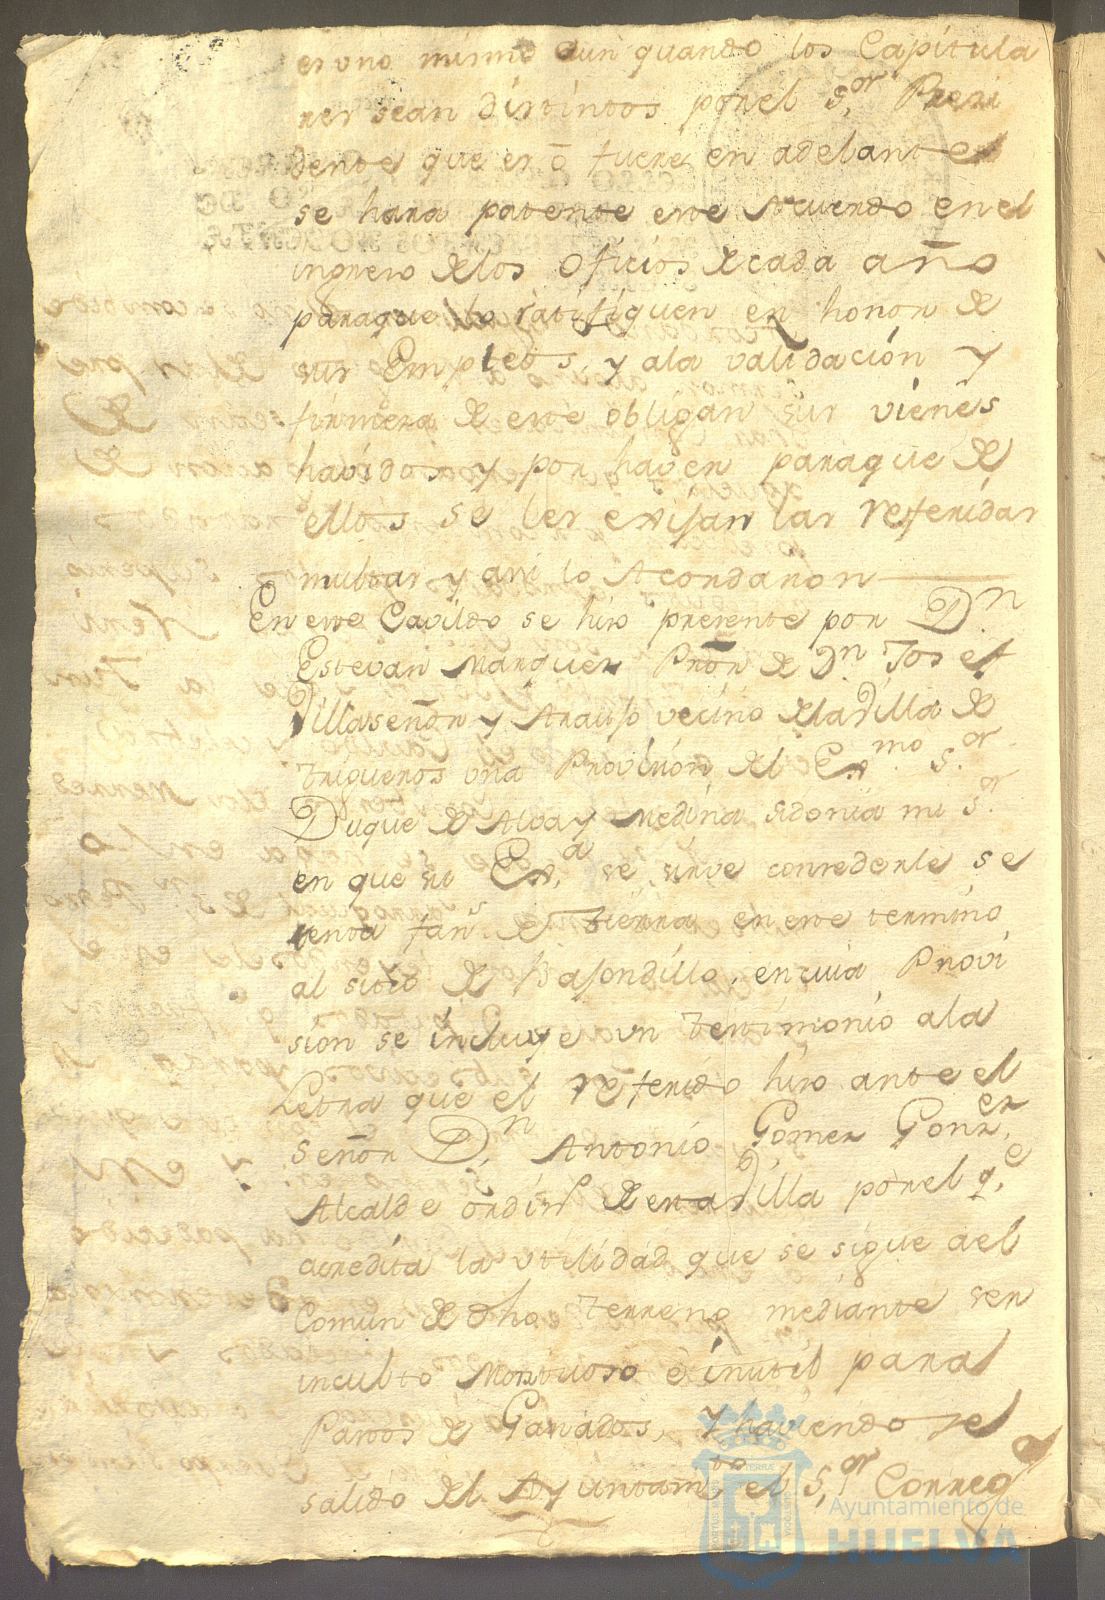 es uno mismo aun quando los Capitula
res sean distintos por el S.or Presi
dente que es ó fuere en adelante
se hara patente este Acuerdo en el
ingreso de los oficios de cada año
paraque lo ratifiquen en honor de
sus Empleos, y ala validación y
firmeza de este obligan sus vienes
havidos y por haver paraque de
ellos se les exijan las referidas
multas y asi lo Acordaron
En este Cavildo se hizo presente por D.n
Estevan Marquez Prôr de D.n Josef
Villaseñor y Araujo vecino dela Villa de
trigueros una Provision del Ex.mo S.or
Duque de Alva y Medina Sidonia mi S.r
en que su Ex.a se sirve concederle se
senta fan.s de tierra en este termino
al sitio de Bajondillo, en cuia Provi
sion se incluye un testimonio ala
Letra que el referido hizo ante el
Señor D.n Antonio Gomez Gonz.ez
Alcalde ordin.o de esta Villa por el q.e
acredita la utilidad que se sigue a el
Comun de dho terreno mediante ser
inculto Montuoso é inutil para
Pastos de Ganados, y haviendose
salido del Ayuntam.to el S.or Correg.r
Ayuntamiento de
HUELVA